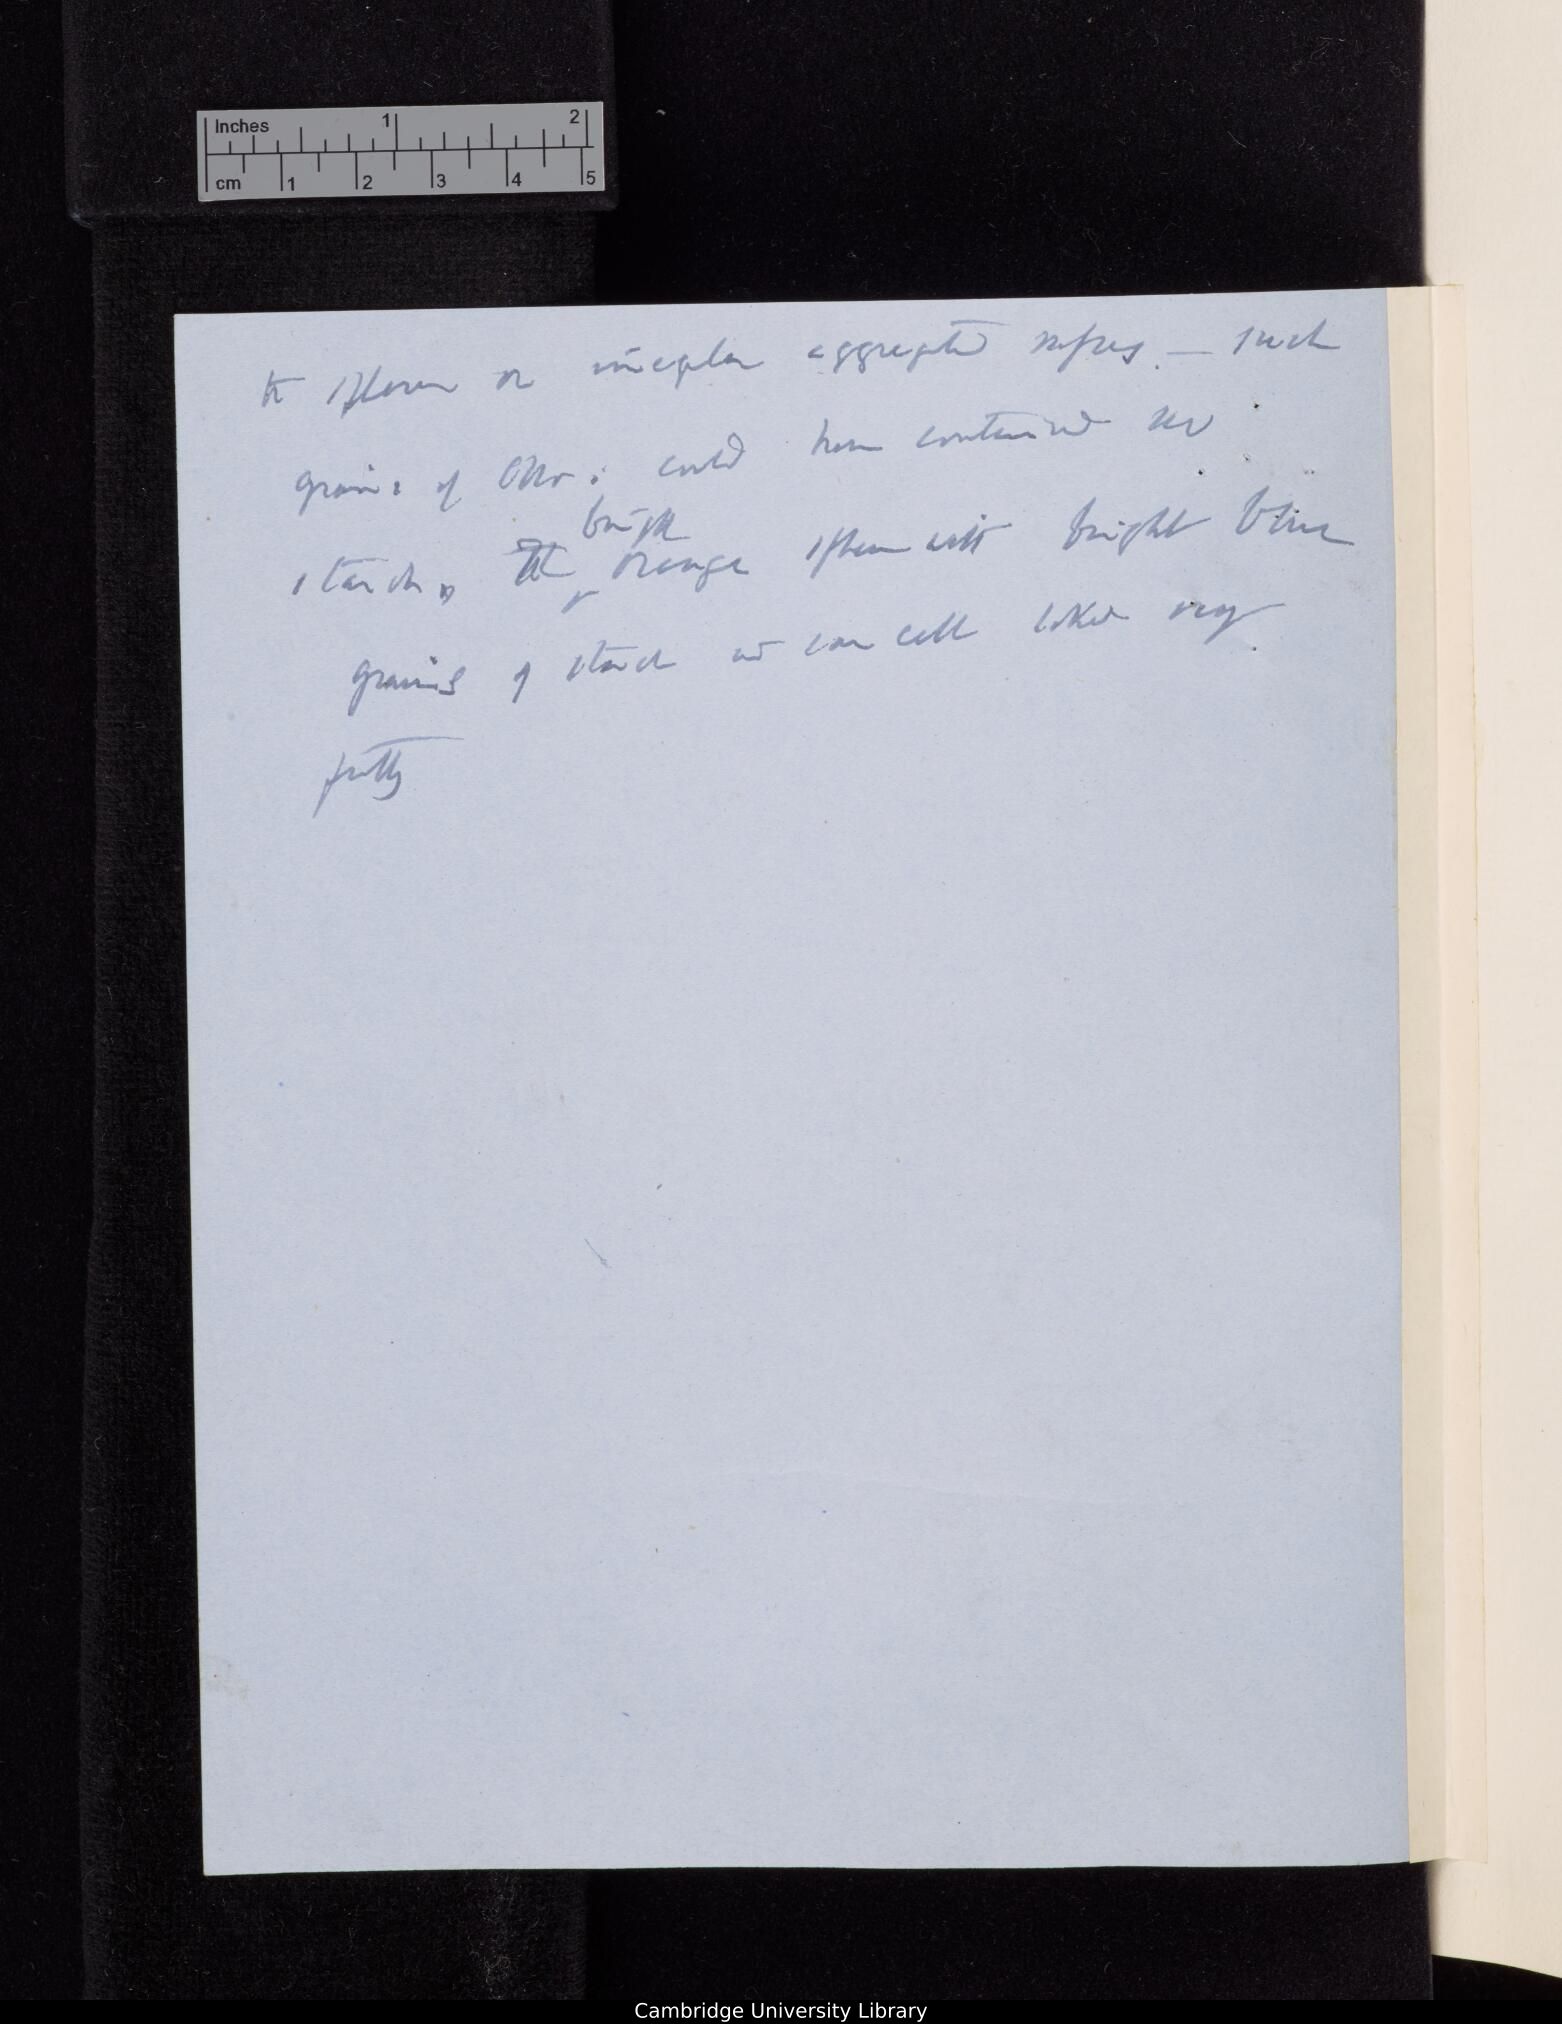 Inches 1 2
cm 1 2 3 4 5
to spheres or irregular aggregated masses — such
grains of Chlor: could have contained no
starch, The bright orange spheres with bright blue
grains of starch in same cell looked very
pretty
Cambridge University Library